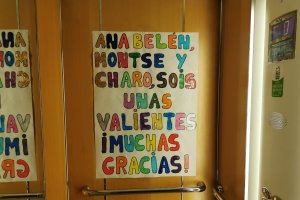 ANA BELÉN,
MONTSE Y
CHARO, SOIS
UNAS
VALIENTES
¡MUCHAS
GRACIAS!